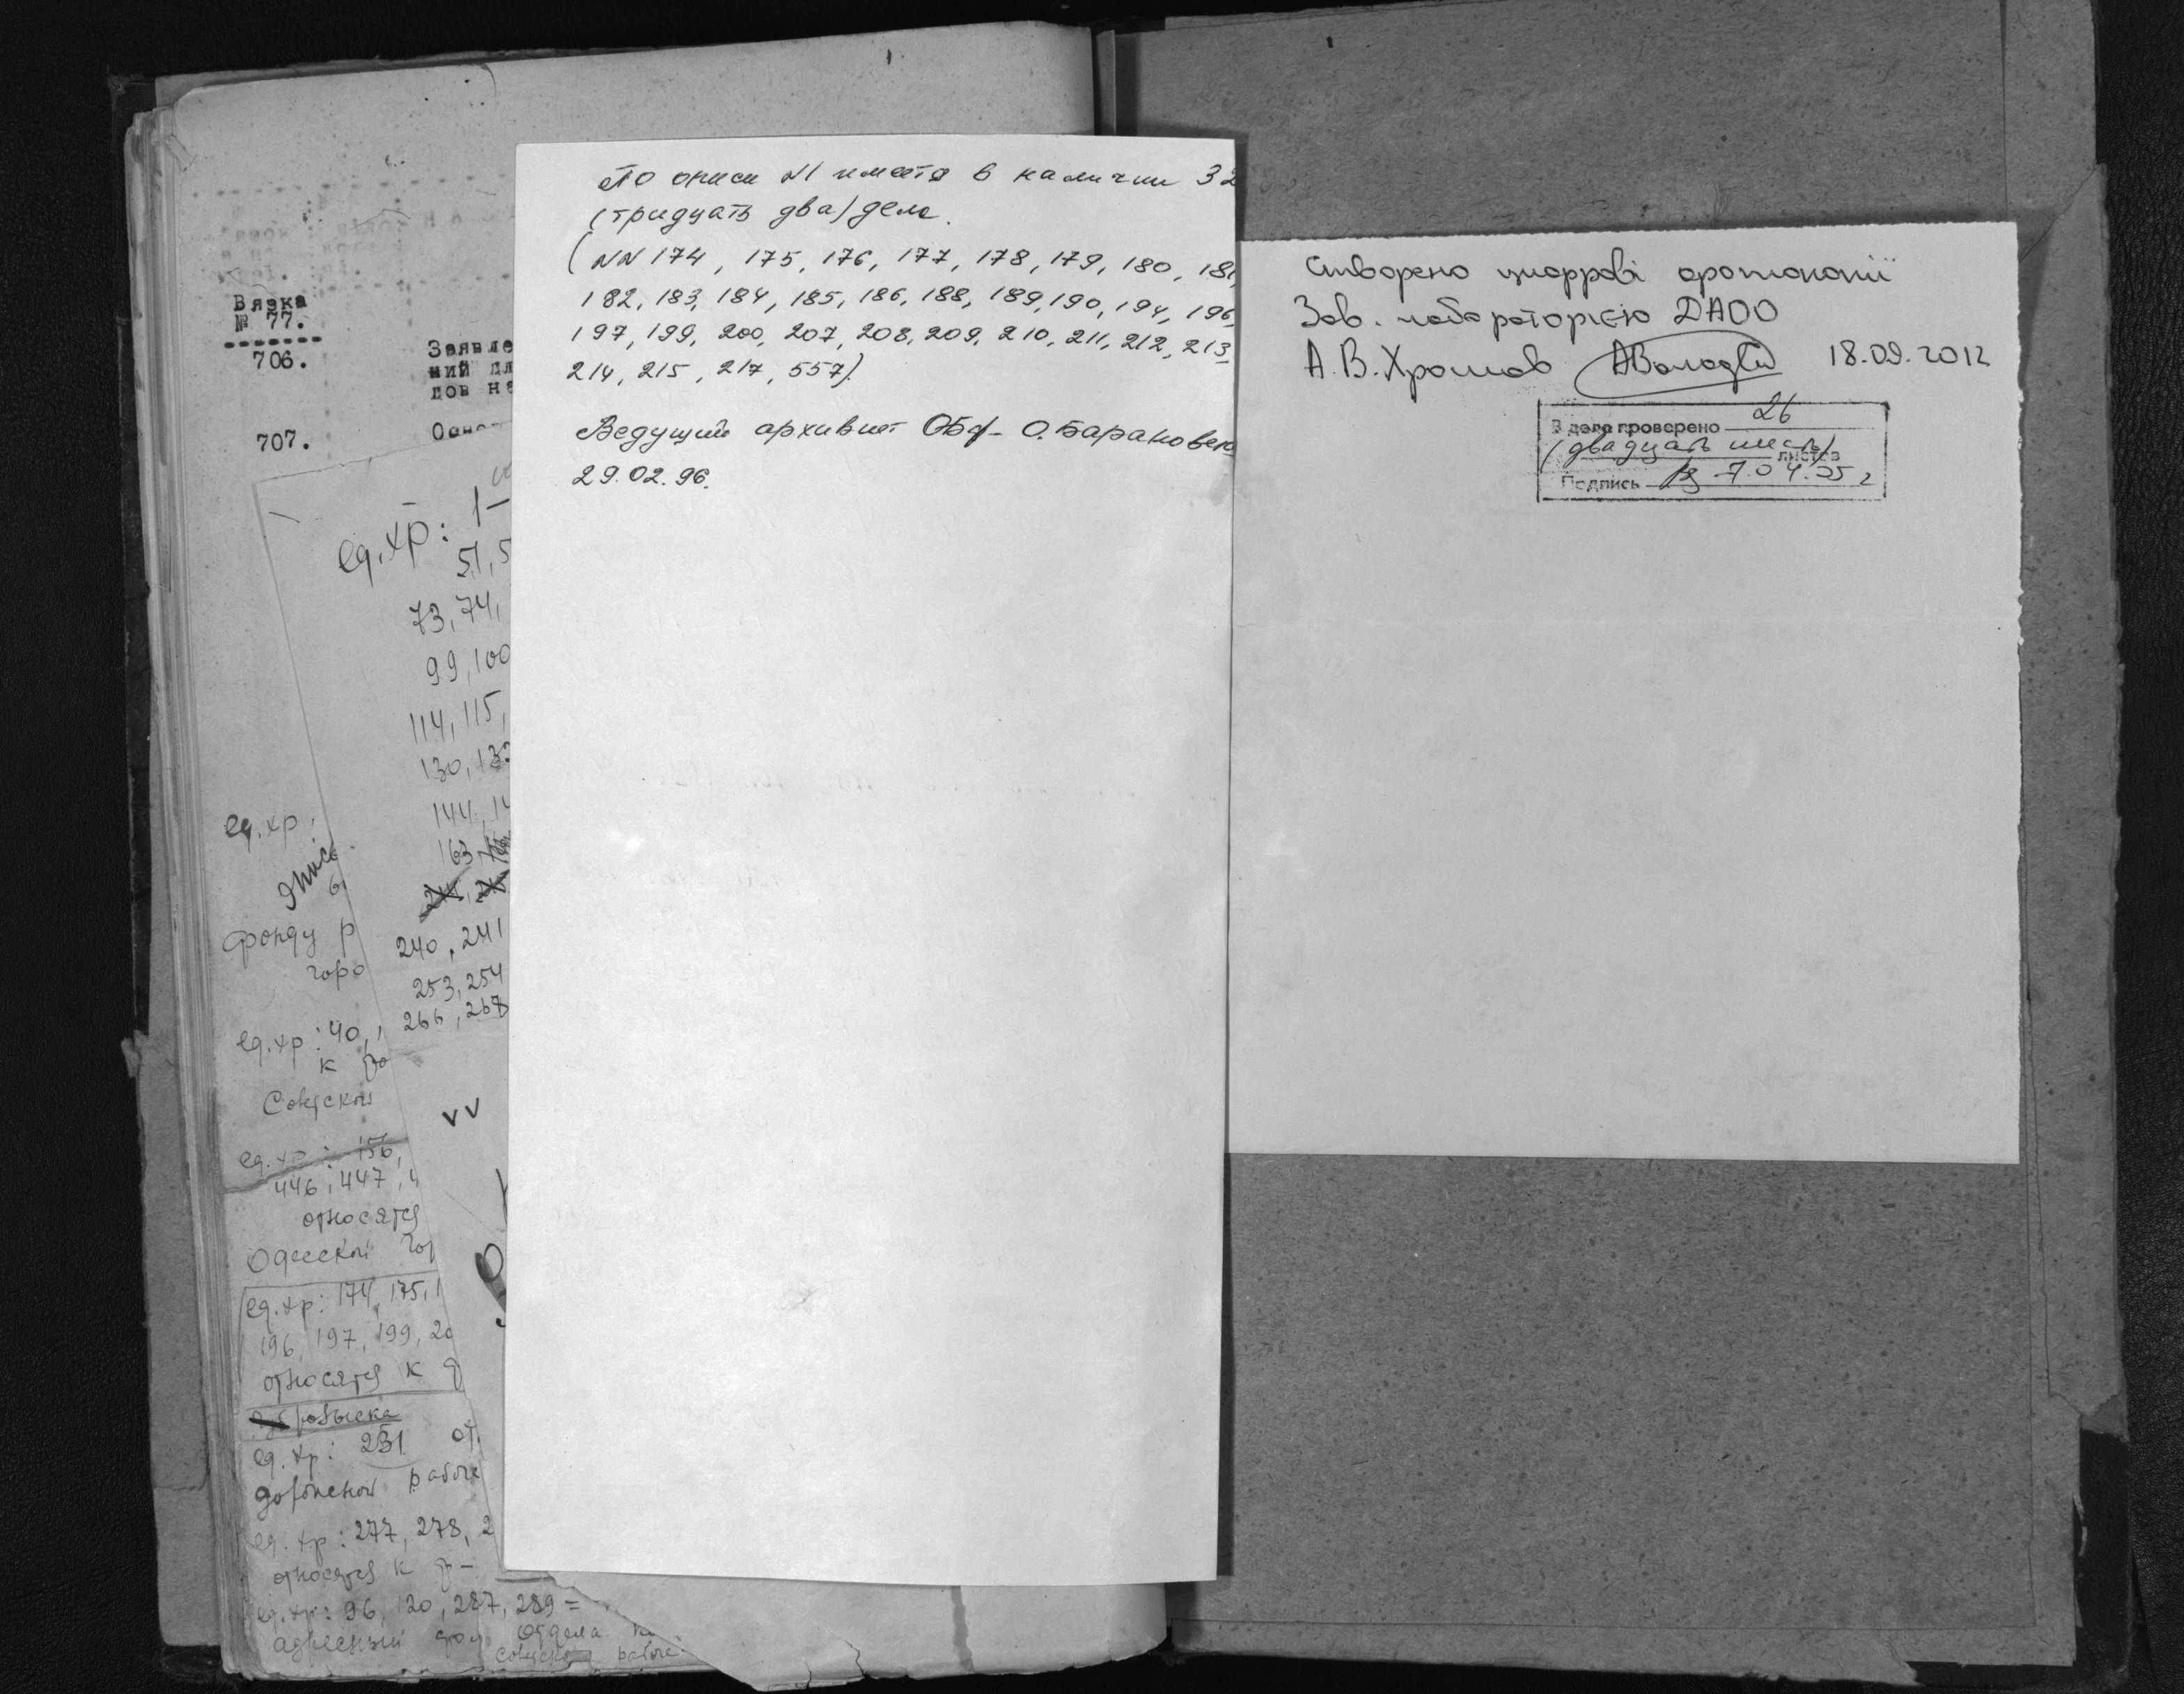 Вязка
№ 77.
706.
Заявле
ний дл
дов на
707.
ед.хр: 1-
51, 5
73, 74,
99, 100
114, 115,
130, 133
144, 14
163
240, 241
253, 254
266, 267
ед.хр.
фонду р
горо
ед.хр: 40,
к фо
Советской
ед.хр: 156,
446, 447, 4
относятся
Одесской гор
ед.хр: 174, 175, 1
196, 197, 199, 20
относятся к ф
розыска
ед.хр: 231 от
рабоче
ед.хр: 277, 278, 2
относятся к ф-
ед.хр: 96, 120, 287, 289 =
адресный стол отдела
рабоче
По описи №1 имеется в наличии 32
(тридцать два) дела.
(NN 174, 175, 176, 177, 178, 179, 180, 181,
182, 183, 184, 185, 186, 188, 189, 190, 194, 196,
197, 199, 200, 207, 208, 209, 210, 211, 212, 213,
214, 215, 217, 557).
Ведущий архивист О. Барановск
29.02.96.
Створено цифрові фотокопії
Зав. лабораторією ДАОО
А.В.Хромов 18.09.2012
В деле проверено 26
(двадцать шесть) листов
Подпись 7.04.05 г